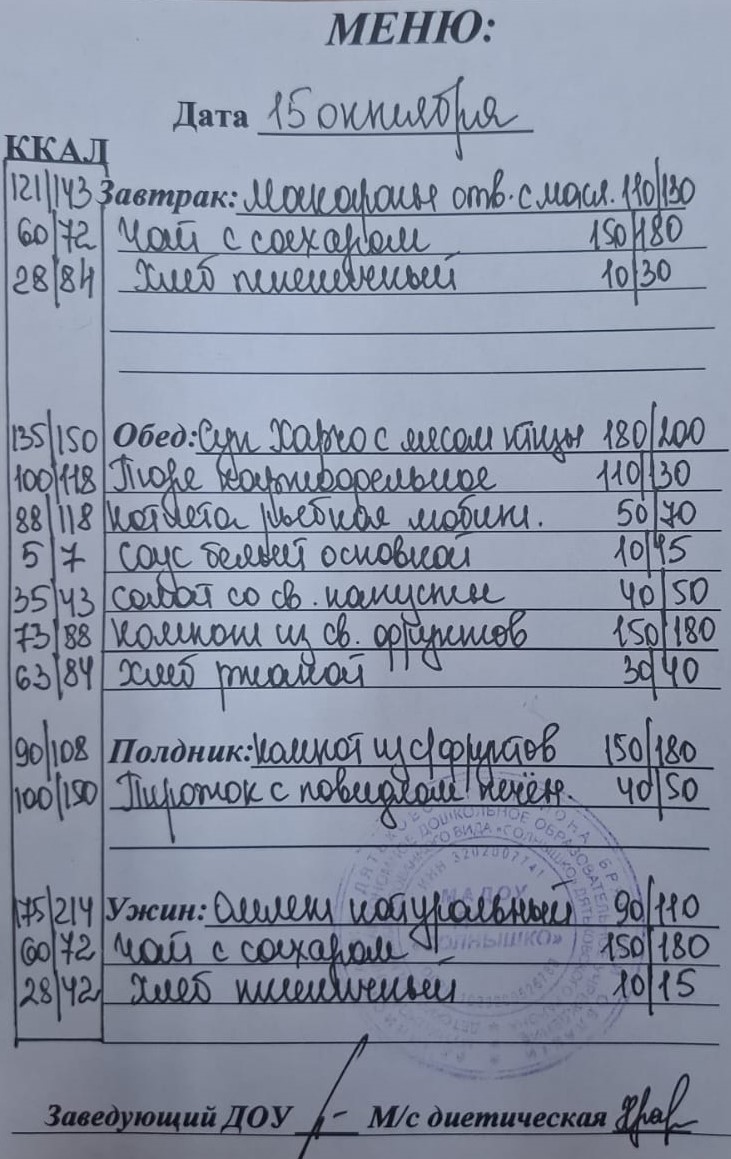 МЕНЮ:
Дата 15 октября
ККАЛ
121/143 Завтрак: Макароны отв. с масл. 110/130
60/72 Чай с сахаром 150/180
28/84 Хлеб пшеничный 10/30
135/150 Обед: Суп Харчо с мясом птицы 180/200
100/118 Пюре картофельное 110/130
88/118 Котлета рыбная любит. 50/70
5/7 Соус белый основной 10/15
35/43 салат со св. капусты 40/50
73/88 компот из св. фруктов 150/180
63/84 Хлеб ржаной 30/40
90/108 Полдник: компот из с/фруктов 150/180
100/150 Пирожок с повидлом печён. 40/50
175/214 Ужин: Омлет натуральный 90/110
60/72 Чай с сахаром 150/180
28/42 Хлеб пшеничный 10/15
ИНН 3202007741
МАДОУ
«СОЛНЫШКО»
Заведующий ДОУ М/с диетическая